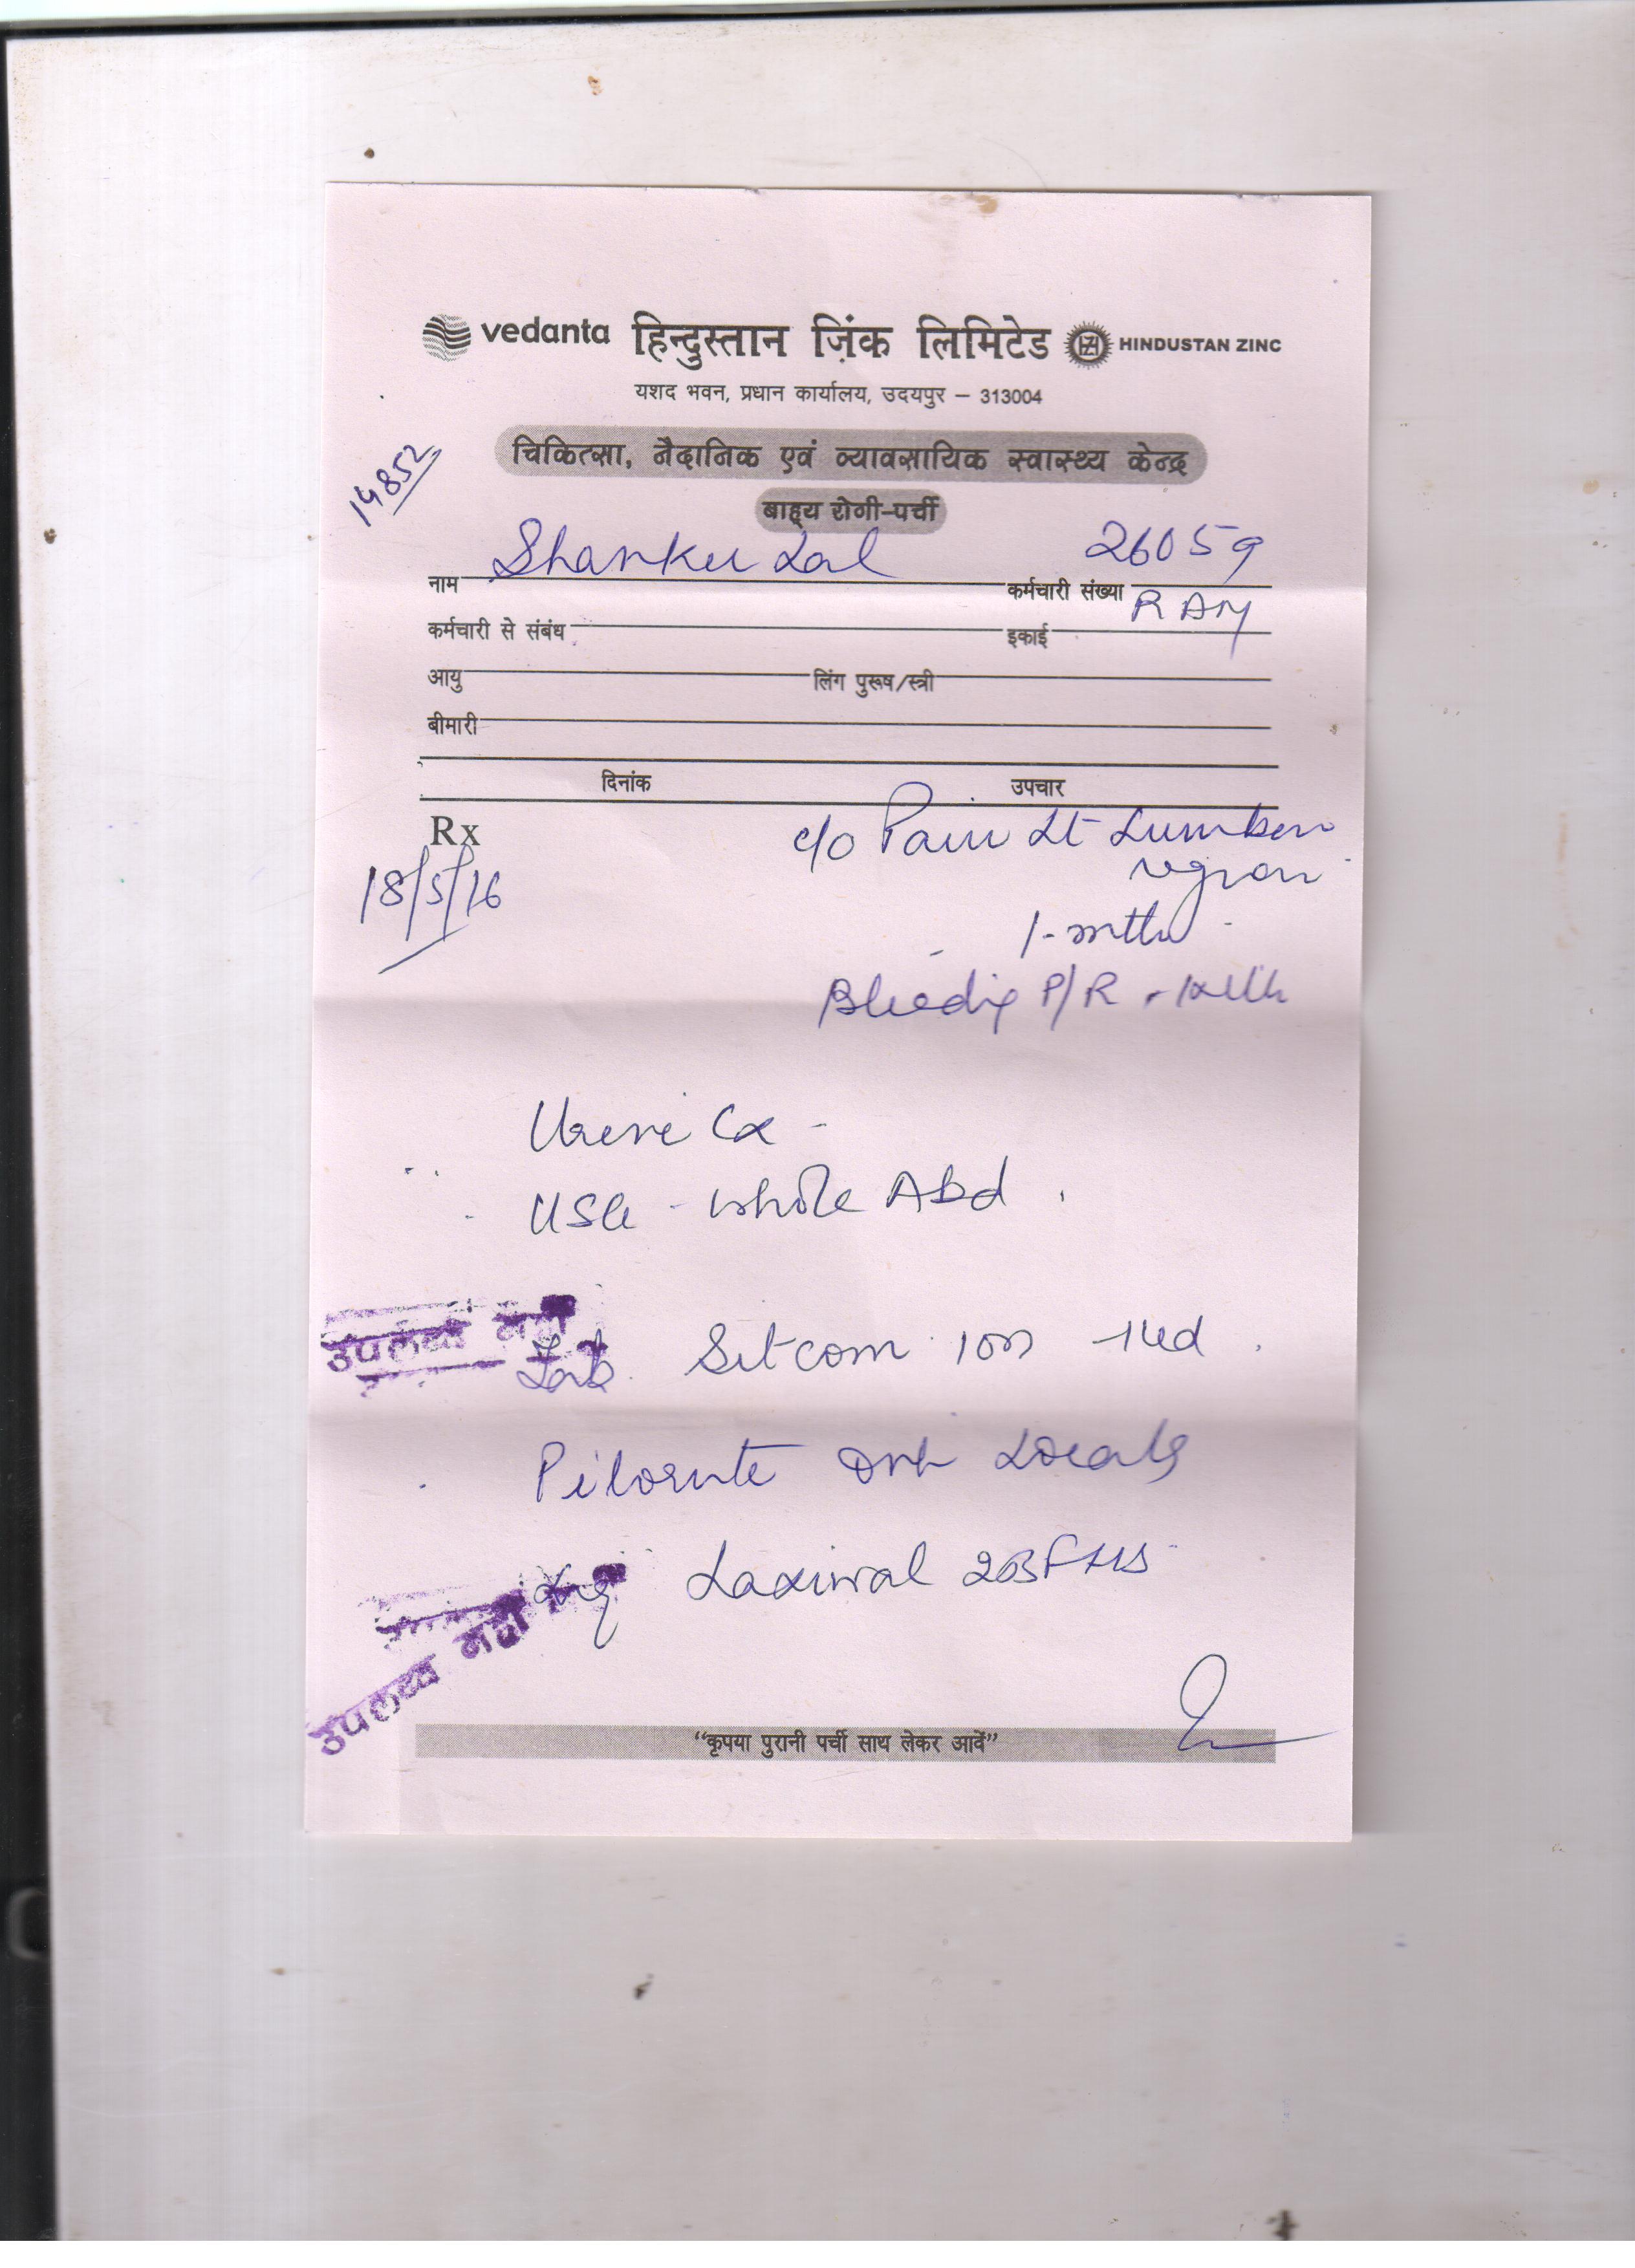 vedanta हिन्दुस्तान ज़िंक लिमिटेड HZ HINDUSTAN ZINC
यशद भवन, प्रधान कार्यालय, उदयपुर – 313004
चिकित्सा, नैदानिक एवं व्यावसायिक स्वास्थ्य केन्द्र
14852
बाह्य रोगी-पर्ची
नाम Shanker Lal कर्मचारी संख्या 26059
कर्मचारी से संबंध इकाई RAM
आयु लिंग पुरूष/स्त्री
बीमारी
दिनांक उपचार
Rx c/o Pain Lt Lumber
18/5/16 region
1-mth
Bleedig P/R
Urene Cx -
USG - whole Abd.
उपलब्ध नहीं
Tab. Sitcom
Pilorute ont Locally
Laxiwal
उपलब्ध नहीं
“कृपया पुरानी पर्ची साथ लेकर आवें”